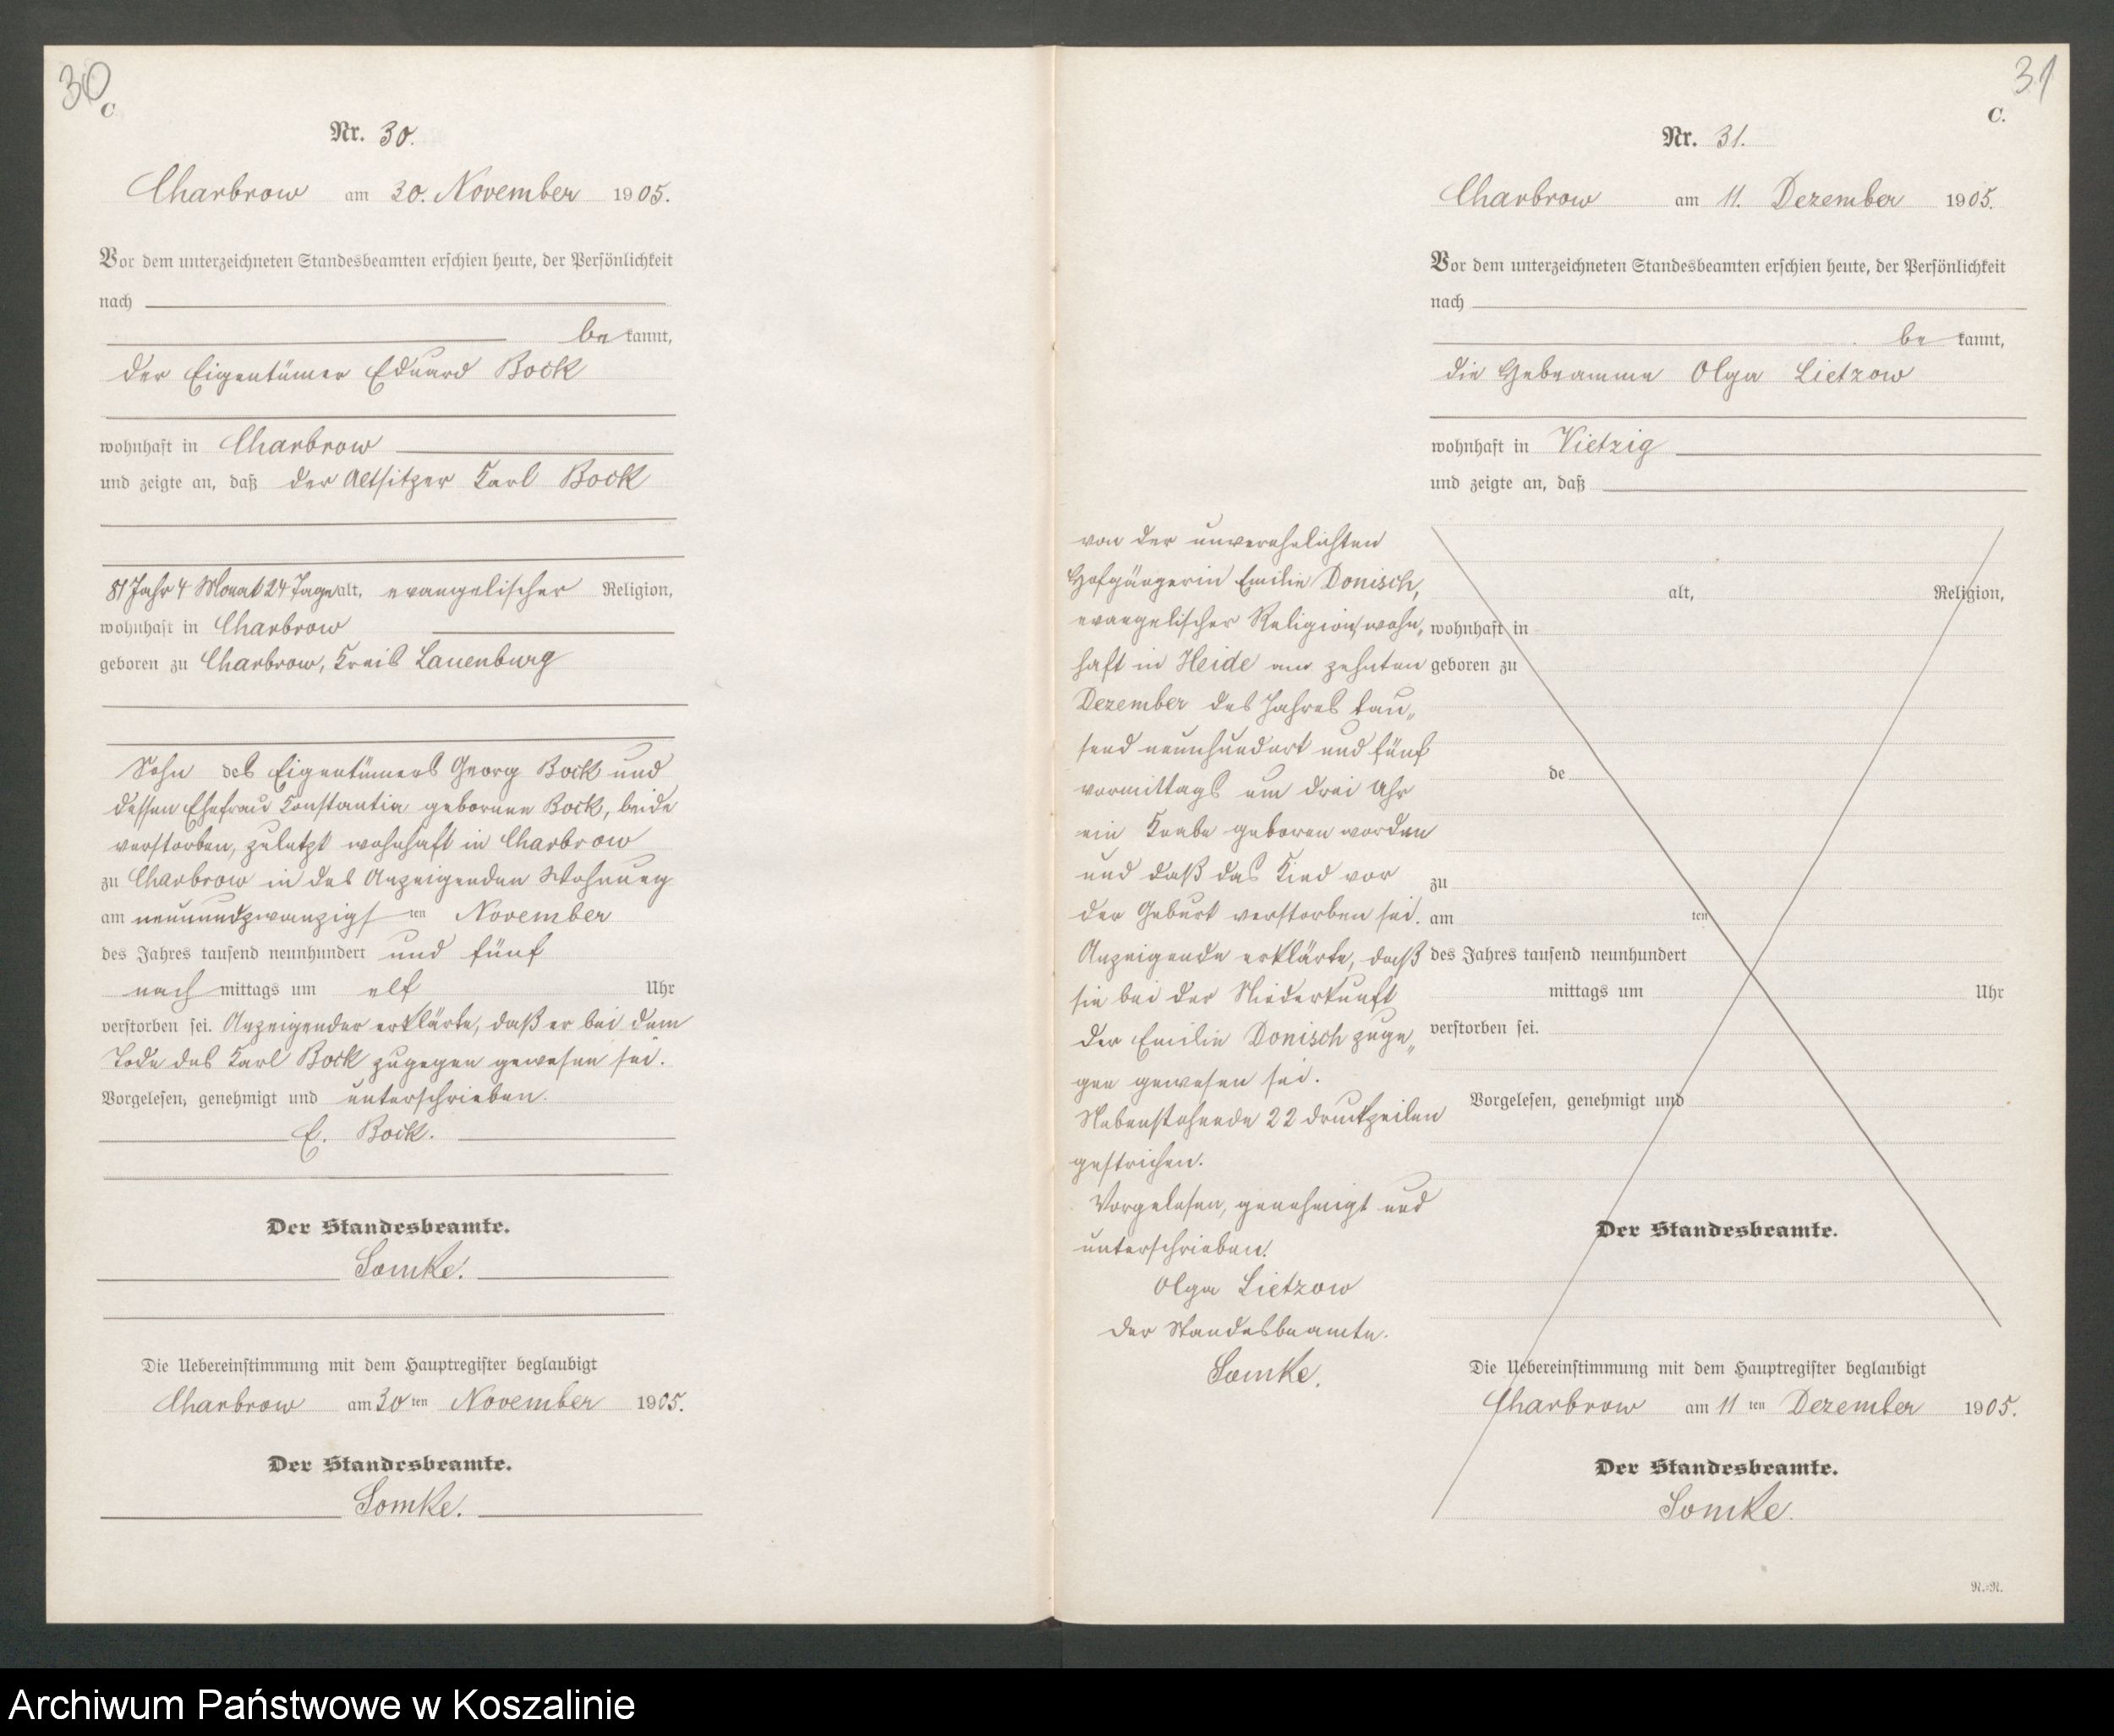 30
C
Nr. 30.
Charbrow am 30. November 1905.
Vor dem unterzeichneten Standesbeamten erschien heute, der Persönlichkeit
nach
be kannt,
der Eigentümer Eduard Bock
wohnhaft in Charbrow
und zeigte an, daß der Altsitzer Karl Bock
81 Jahr 4 Monat 24 Tage alt, evangelischer Religion,
wohnhaft in Charbrow
geboren zu Charbrow, Kreis Lauenburg
Sohn des Eigentümers Georg Bock und
dessen Ehefrau Konstantia geborenen Bock, beide
verstorben, zuletzt wohnhaft in Charbrow
zu Charbrow in des Anzeigenden Wohnung
am neunundzwanzigsten November
des Jahres tausend neunhundert und fünf
nach mittags um elf Uhr
verstorben sei. Anzeigender erklärte, daß er bei dem
Tode des Karl Bock zugegen gewesen sei.
Vorgelesen, genehmigt und unterschrieben.
E. Bock.
Der Standesbeamte.
Somke.
Die Uebereinstimmung mit dem Hauptregister beglaubigt
Charbrow am 30 ten November 1905.
Der Standesbeamte.
Somke.
31
C.
Nr. 31.
Charbrow am 11. Dezember 1905.
Vor dem unterzeichneten Standesbeamten erschien heute, der Persönlichkeit
nach
be kannt,
die Hebeamme Olga Lietzow
wohnhaft in Vietzig
und zeigte an, daß
von der unverehelichten
Hofgängerin Emilie Donisch,
evangelischer Religion, wohn„
haft in Heide am zehnten
Dezember des Jahres tau„
send neunhundert und fünf
vormittags um drei Uhr
ein Knabe geboren worden
und daß das Kind vor
der Geburt verstorben sei.
Anzeigende erklärte, daß
sie bei der Niederkunft
der Emilie Donisch zuge„
gen gewesen sei.
Nebenstehende 22 Druckzeilen
gestrichen.
Vorgelesen, genehmigt und
unterschrieben.
Olga Lietzow
Der Standesbeamte.
Somke.
alt, Religion,
wohnhaft in
geboren zu
de
zu
am ten
des Jahres tausend neunhundert
mittags um Uhr
verstorben sei.
Vorgelesen, genehmigt und
Der Standesbeamte.
Die Uebereinstimmung mit dem Hauptregister beglaubigt
Charbrow am 11 ten Dezember 1905.
Der Standesbeamte.
Somke.
R.-R.
Archiwum Państwowe w Koszalinie